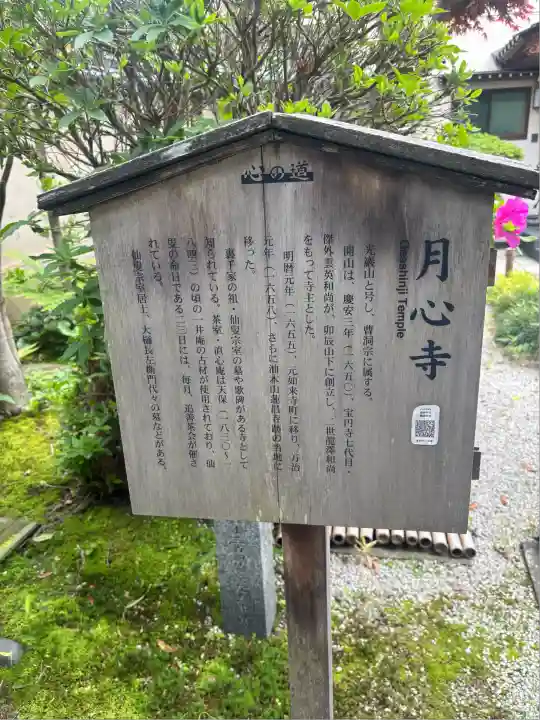 心の道
月心寺
Gesshinji Temple
光巌山と号し、曹洞宗に属する。
開山は、慶安三年(一六五〇)、宝円寺七代目・
傑外雲英和尚が、卯辰山下に創立し、二世龍澤和尚
をもって寺主とした。
明暦元年(一六五五)、元如来寺町に移り、万治
元年(一六五八)、さらに油木山蓮昌寺跡の当地に
移った。
裏千家の祖・仙叟宗室の墓や歌碑がある寺として
知られている。茶室・直心庵は天保(一八三〇~一
八四三)の頃の一井庵の古材が使用されており、仙
叟の命日である二三日には、毎月、追善茶会が催さ
れている。
仙叟宗室居士、大樋長左衛門代々の墓などがある。